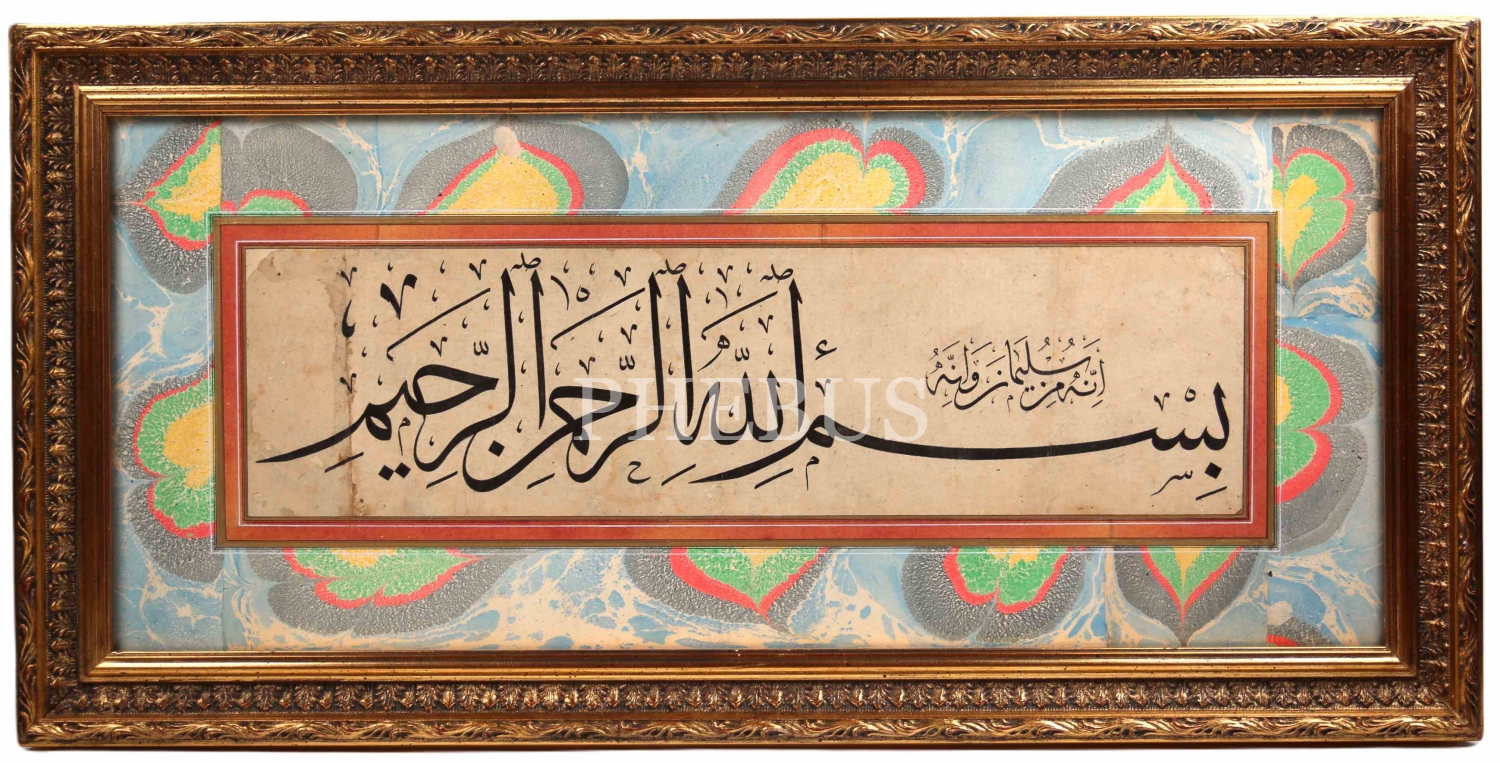 إِنَّهُ مِنْ سُلَيْمَانَ وَإِنَّهُ
بِسْمِ اللَّهِ الرَّحْمٰنِ الرَّحِيمِ
PHEBUS